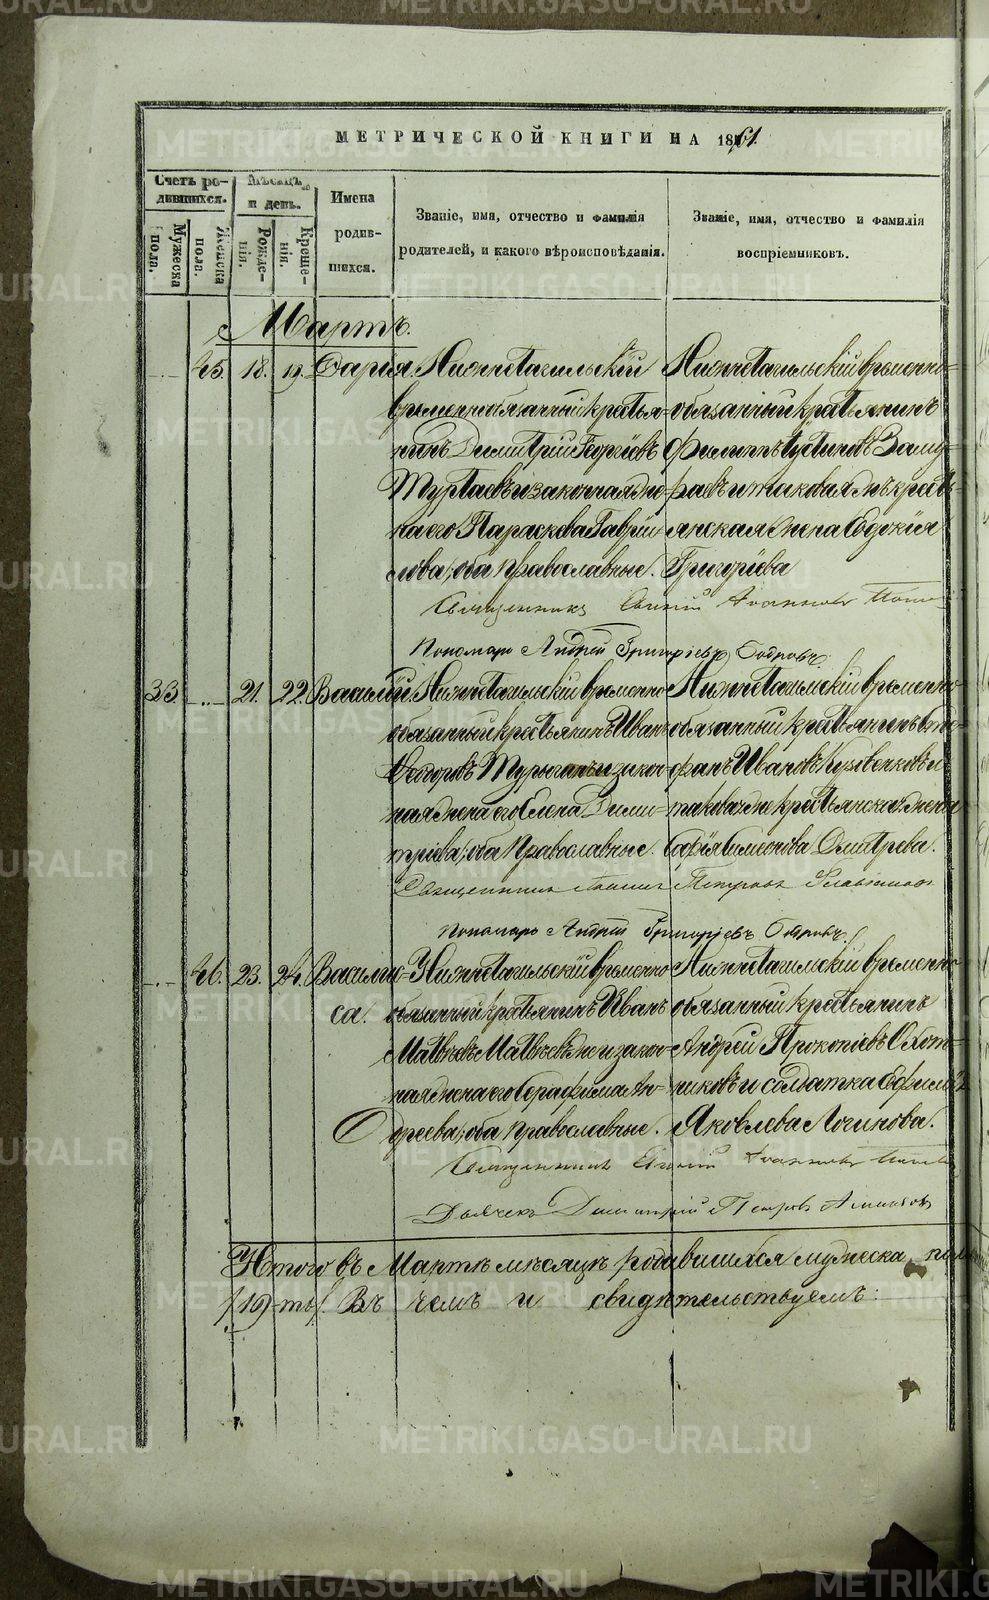 МЕТРИЧЕСКОЙ КНИГИ НА 1861.
Счетъ ро-
дившихся.
Мѣсяцъ
и день.
Имена
родив-
шихся.
Званіе, имя, отчество и фамилія
родителей, и какого вѣроисповѣданія.
Званіе, имя, отчество и фамилія
воспріемниковъ.
Мужеска
пола.
Женска
пола.
Рожде-
нія.
Креще-
нія.
Мартъ.
45. 18. 19. Дарія.
Нижнетагильскій
временнообязанный крестья-
нинъ Димитрій Георгіевъ
и законная же-
на его Параскева Гаврiи-
лова, оба православные.
Нижнетагильскій временно-
обязанный крестьянинъ
Филиппъ Устиновъ
и таковая же кресть-
янская жена Евдокія
Григоріева
Священникъ Іоанновъ
Пономарь Андрей Григоріевъ Бобровъ.
33. 21. 22. Василій.
Нижнетагильскій временно
обязанный крестьянинъ Иванъ
Ѳедоровъ и закон-
ная жена его Елена Дими-
тріева, оба православные.
Нижнетагильскій временно
обязанный крестьянинъ Сте-
фанъ Ивановъ и
таковая же крестьянская жена
Симеонова
Священникъ Іоаннъ Петровъ
Пономарь Андрей Григорьевъ Бобровъ.
46. 23. 24. Василис-
са.
Нижнетагильскій временно
обязанный крестьянинъ Иванъ
Матвѣевъ и закон-
ная жена его Серафима Ан-
дреева, оба православные.
Нижнетагильскій временно
обязанный крестьянинъ
Андрей Прокопіевъ Охот-
никовъ и солдатка
Яковлева Логинова.
Священникъ Іоанновъ
Дьячекъ Димитрій Петровъ
Итого въ Мартѣ мѣсяцѣ родившихся мужеска
(19-ть). Въ чемъ и свидѣтельствуемъ:
METRIKI.GASO-URAL.RU